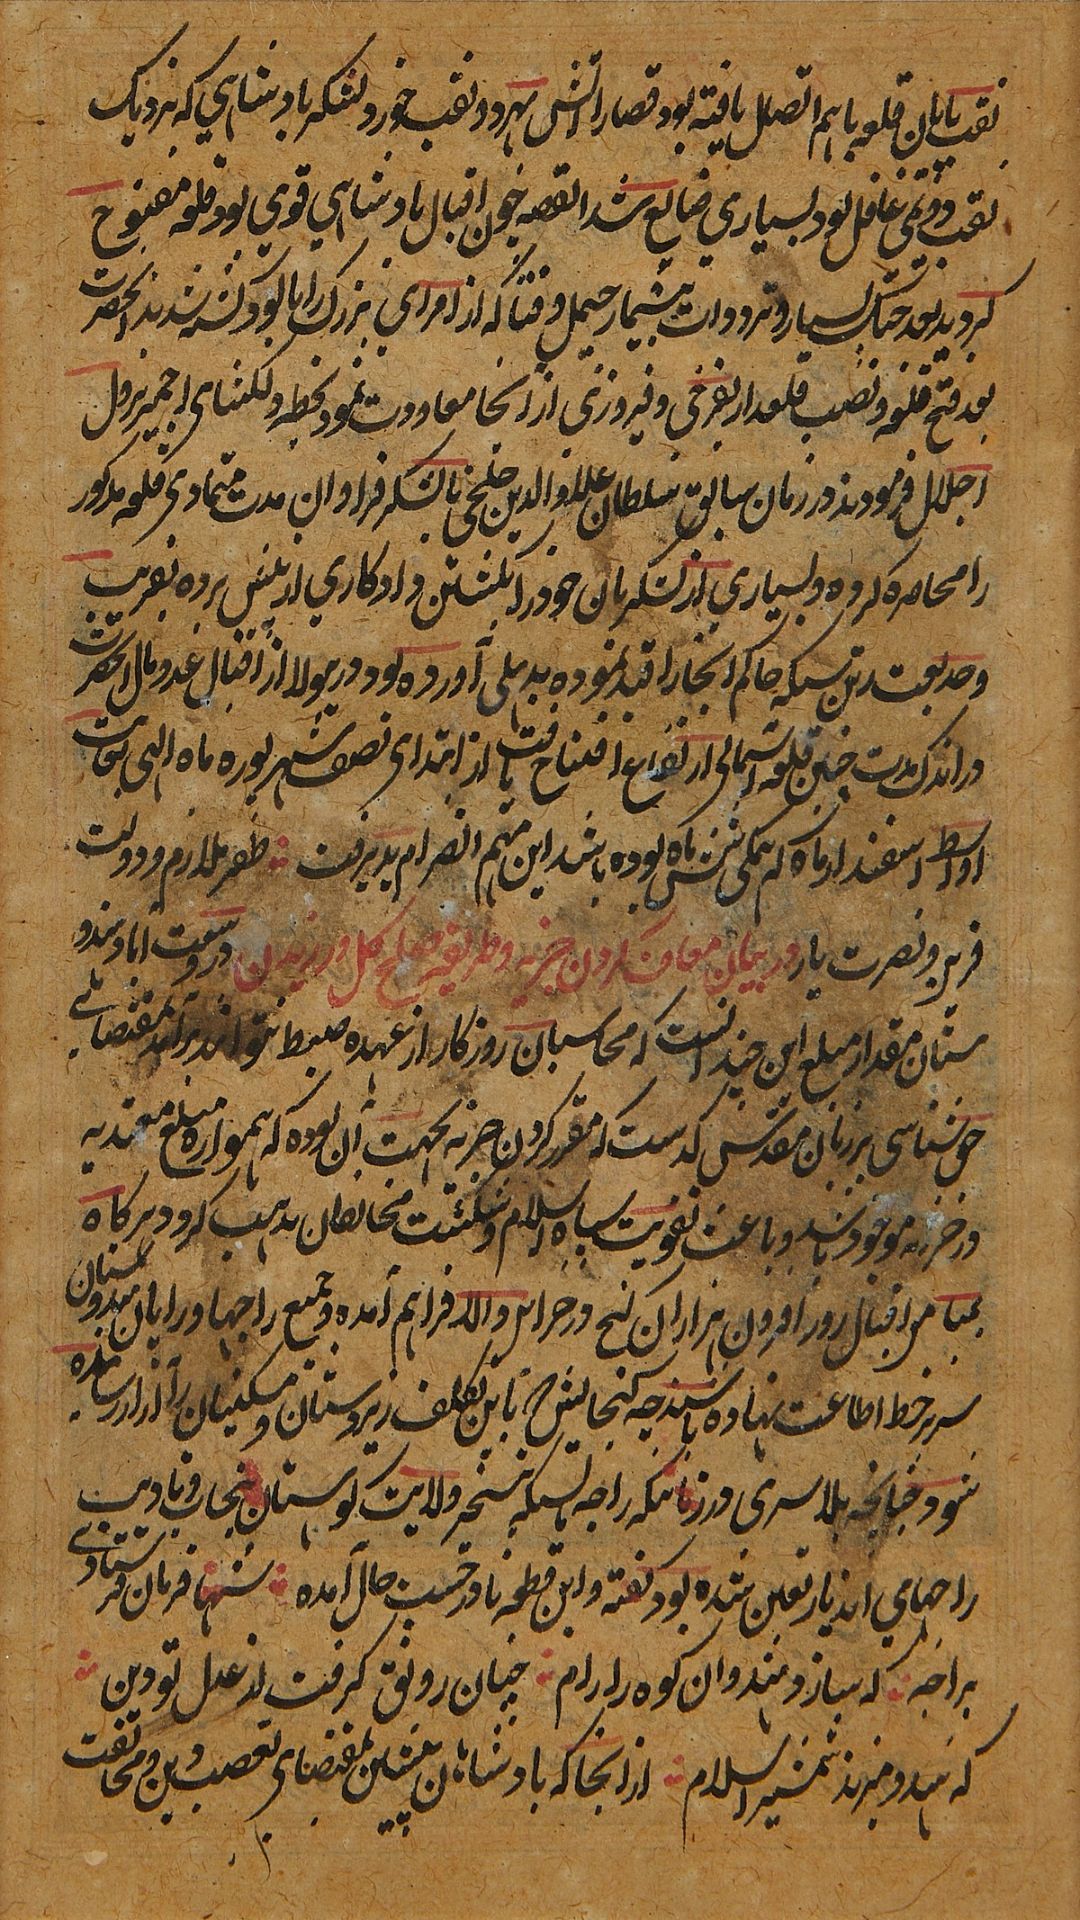 نقب تا پایان قلعه باهم اتصال یافته بود قضارا اتش بهر دو نقب خورد لشکر بادشاهی که نزدیک
نقب دویمی غافل بود بسیاری ضایع شد القصه چون اقبال بادشاهی قوی بود قلعه مفتوح
گردید بعد جنگ بسیار و ترددات بیشمار جیمل و فتا که از امرای بزرگ رانا بود کشته شدند انحضرت
بعد فتح قلعه و نصب قلعدار بفرخی و فیروزی از انجا معاودت نمود بخطه دلکشای اجمیر نزول
اجلال فرمودند در زمان سابق سلطان علاوالدین خلجی با لشکر فراوان مدت متمادی قلعه مذکور
را محاصره کرده و بسیاری از لشکریان خود را بکشتن داد کاری از پیش برده بفریب
و خدیعت رتن سین که حاکم انجا را قید نموده بدهلی آورده بود درینولا از اقبال عدو مال انحضرت
در اندک مدت چنین قلعه اسمانی ارتفاع افتتاح یافت از ابتدای نصف شهریور ماه الهی لغایت
اواسط اسفندار ماه که همگی شش ماه بوده باشد این مهم انصرام پذیرفت ظفر ملازم و دولت
قرین و نصرت یار در بیان معاف کردن جزیه و طریقه صلح کل ورزیدن در وسعت اباد هندو
ستان مقدار مبلغ این چندانست که محاسبان روزکار از عهده ضبط نتواند برامد بمقتضای
حق شناسی بر زبان مقدس گذشت که مقرر کردن جزیه بجهت آن بوده که همواره مبلغ معتدبه
در خزینه موجود باشد و باعث تقویت سپاه اسلام و شکست مخالفان مذهب کردد هر کاه
بمیامن اقبال روز افزون هزاران کنج در خزاین والا فراهم آمده و جمیع راجها و رایان هندوستان
سر بر خط اطاعت نهاده باشند چه کنجایش که باین تکلف زیردستان و مسکینان را آزار رسانیده
شود چنانچه ملا سری در زمانیکه راجه باسکه بتسخیر ولایت کوهستان پنجاب و تادیب
راجهای اندیار تعین شده بود گفته و این قطعه نادر حسب حال آمده شها فرمان فرستادی
براجه که سازد هندوان کوه را رام چنان رونق گرفت از عدل تو دین
که هندو میزند شمشیر اسلام از انجا که بادشاهان پیشین بمقتضای تعصب دین و مخالفت